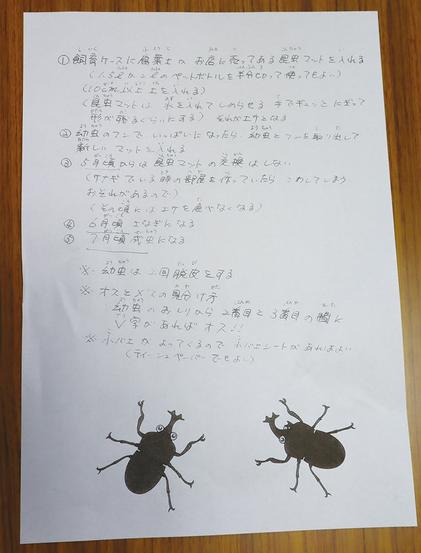 ① 飼育ケースに腐葉土か お店に売ってある昆虫マットを入れる
(1.5ℓか2ℓのペットボトルを半分に切って使ってもよい)
(10cm以上土を入れる)
(昆虫マットは水を入れてしめらせる 手でギュッとにぎって
形が残るくらいにする) それがエサとなる
② 幼虫のフンでいっぱいになったら、幼虫とフンを取り出して
新しいマットを入れる
③ 5月頃からは昆虫マットの交換はしない
(サナギでいる時の部屋を作っていたら こわしてしまう
おそれがあるので)
(その頃にはエサを食べなくなる)
④ 6月頃 さなぎになる
⑤ 7月頃 成虫になる
※ 幼虫は二回脱皮をする
※ オスとメスの見分け方
幼虫のおしりから2番目と3番目の間に
V字があればオス!!
※ コバエがよってくるので コバエシートがあればよい
(ティッシュペーパーでもよい)